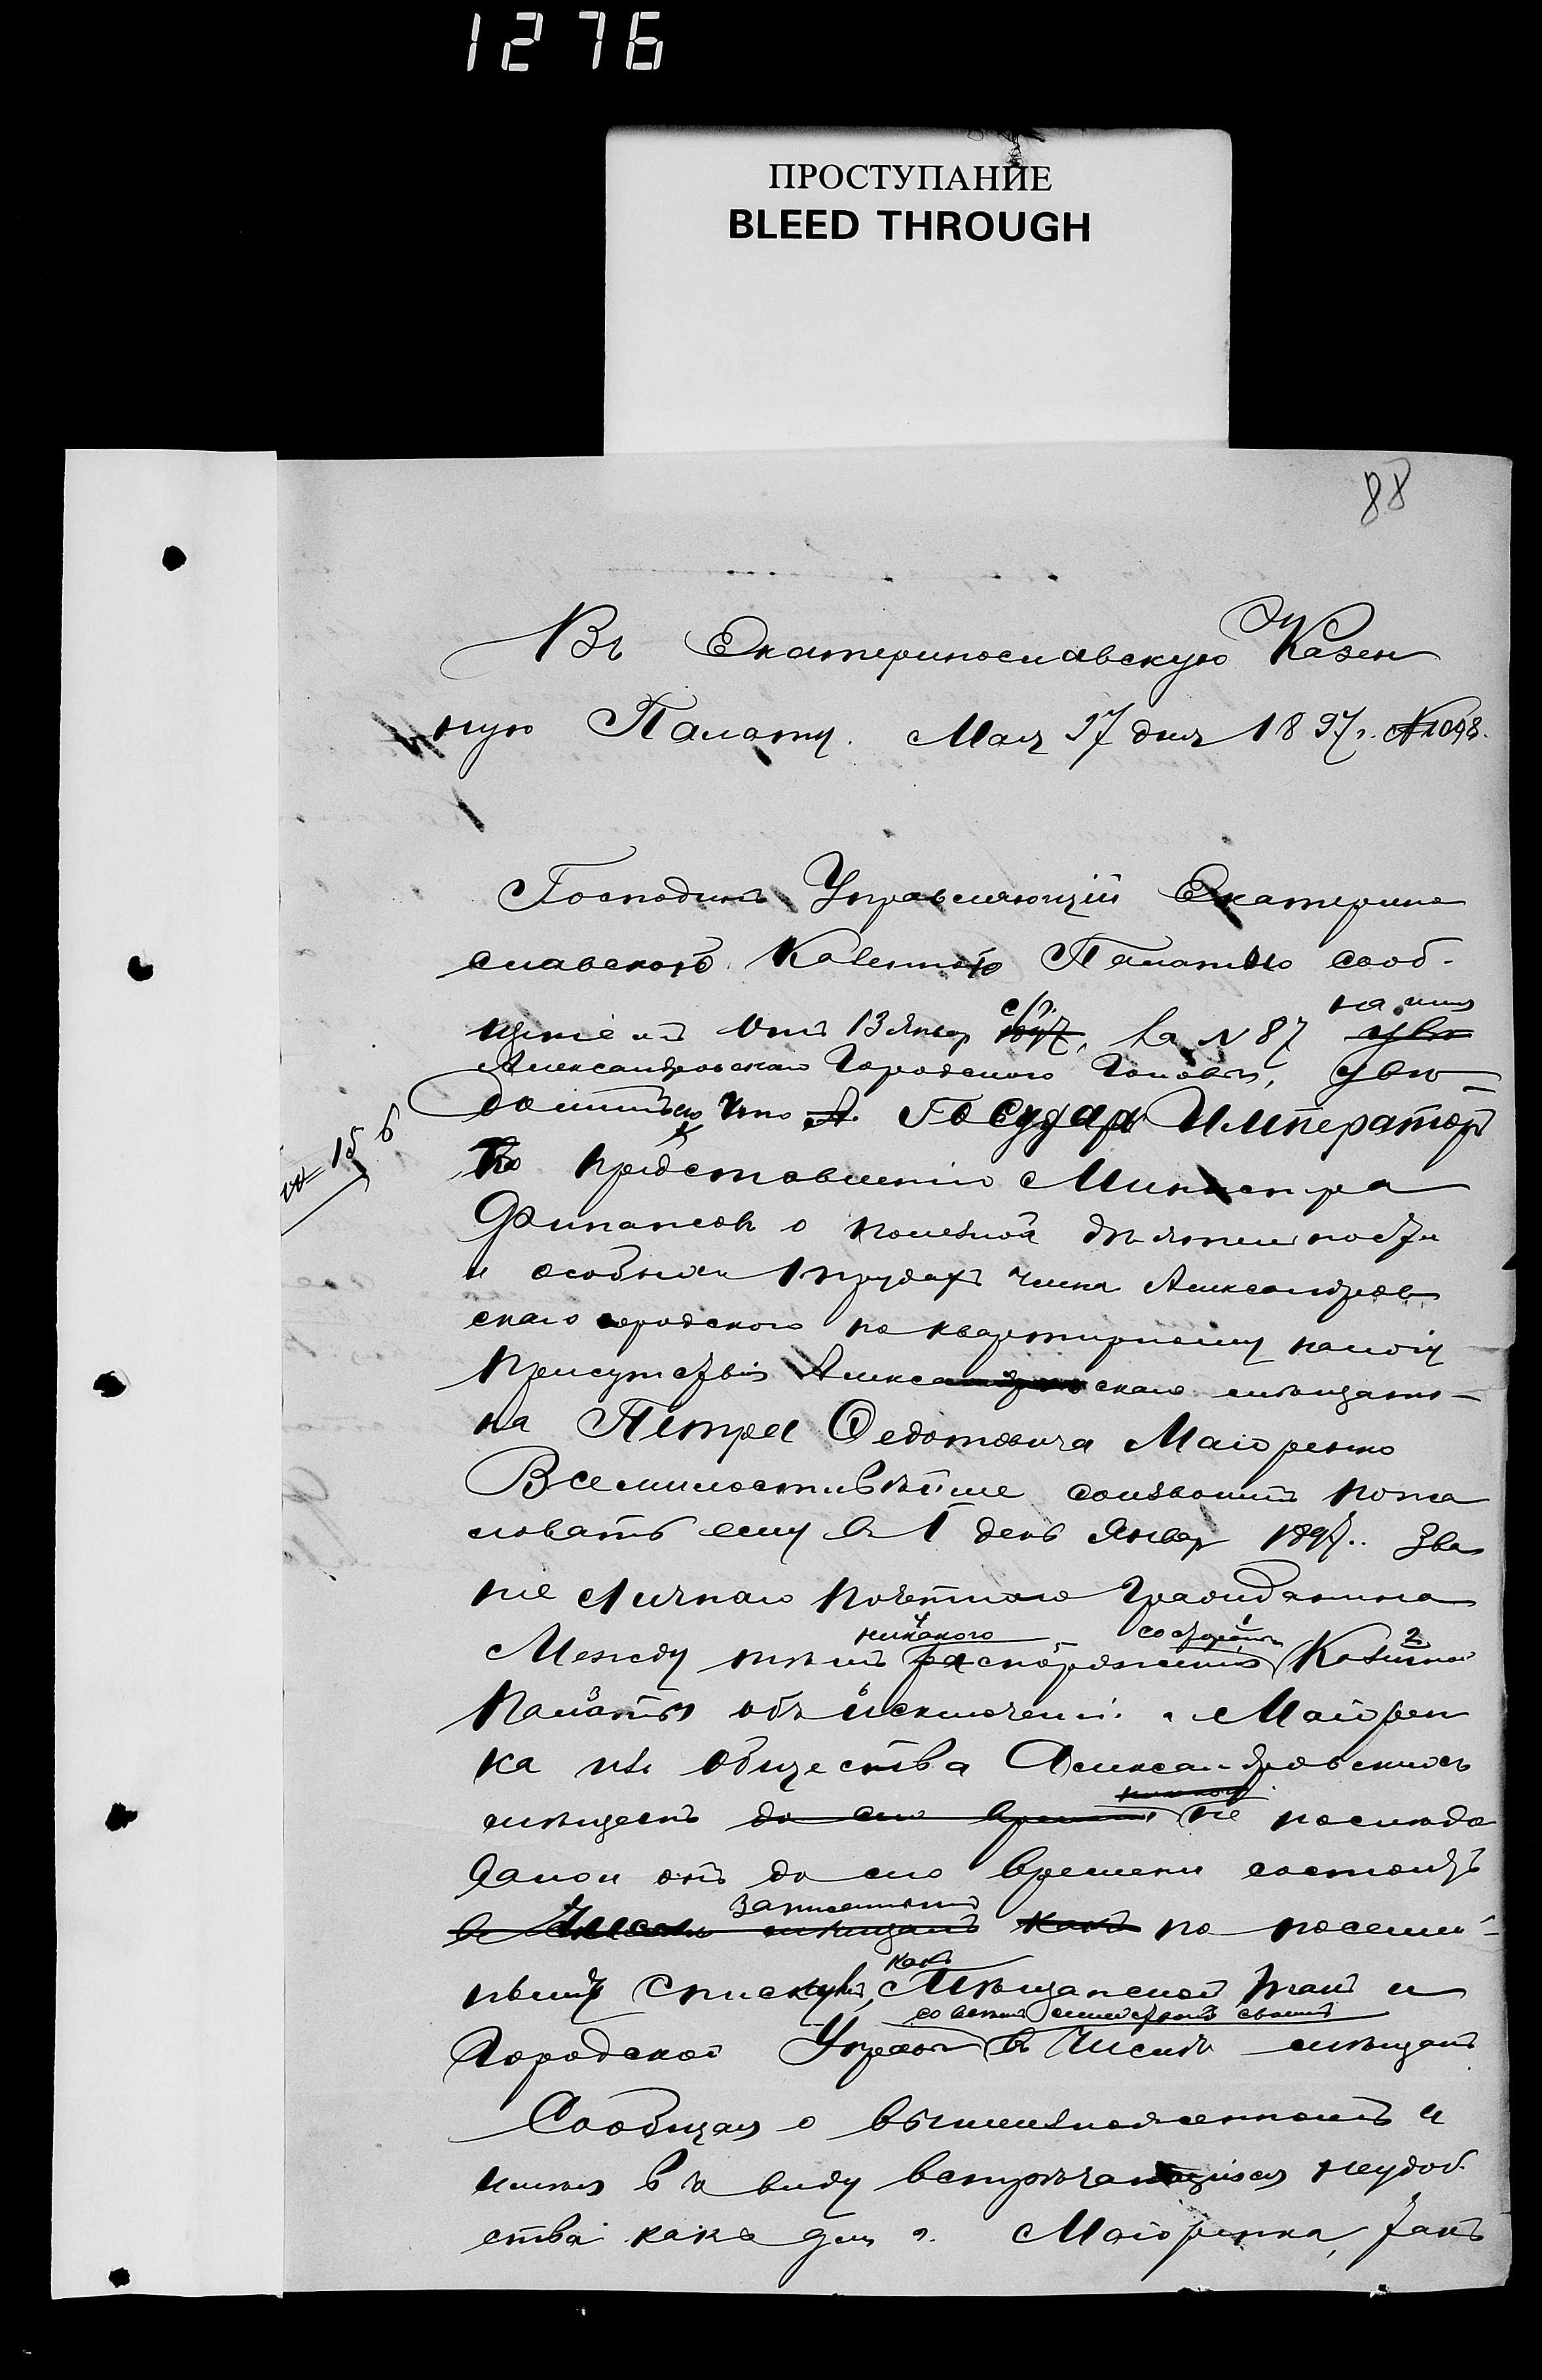 1276
ПРОСТУПАНИЕ
BLEED THROUGH
88
Въ Екатеринославскую Казен
ную Палату. Мая 27 дня 1897 г. № 1098.
Господинъ Управляющій Екатерино
славскою Казенною Палатою сооб-
с/г. на имя
щеніемъ отъ 13 Январ 1897, за № 87 уве
Александровскаго Городского Головы, уве
домилъ, что Государь Императоръ
15
По представленію Министра
Финансовъ о полезной дѣятельности
и особыхъ трудахъ члена Александров
скаго городского по квартирному налогу
Присутствія Александровскаго мѣщани-
на Петра Федотовича Маіоренко
Всемилостивѣйше соизволилъ пожа
ловать ему въ 1 день Январ 1897.. зва
ніе Личнаго почетнаго гражданина
никакого со стороны 2
Между тѣмъ распоряженія Казенной
Палаты объ исключеніи г. Маіорен
ка изъ общества Александровскихъ
мѣщанъ до сего времени не послѣдо
вало и онъ до сего времени состоитъ
записаннымъ
въ числѣ мѣщанъ какъ по посемей-
какъ
нымъ спискамъ, Мѣщанской такъ и
со всемъ семействомъ своимъ
Городской Управы въ числѣ мѣщанъ
Сообщая о вышеизложенномъ и
имѣя въ виду встрѣчающіяся неудоб
ства какъ для г. Маіоренка, такъ